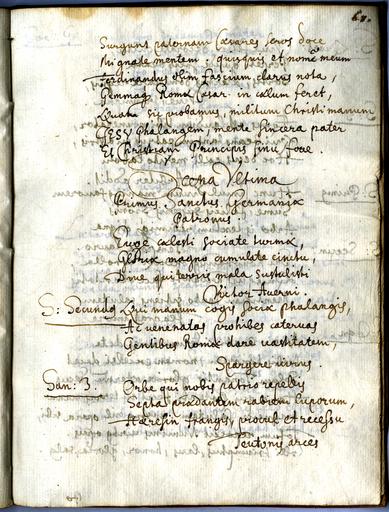 61.
Surgunt paternam Cæsares seros doce
Indignate mentem. quisquis et nomẽ meum
Ferdinandus olim fascium clarus nota,
Gemmaq Romæ Cæsar. in cælum feret,
Quam sic probamus, militum Christi manum
IESV phalangem, mente sincera pater
Et Pristiani Principis sinu foue.
Scena Vltima
Primus Sanctus Germaniæ
Patronus.
Euge cælesti sociate turmæ,
Gloriæ magno cumulate cinctu,
Bine qui terris mala sustulisti
Victor Auerni.
S: Secundus Qui manum cogis sociæ phalangis,
Ac venenatas prohibes cateruas
Gentibus Romæ dare vastitatem,
Spargere virus.
San: 3. Orbe qui nobis patrio repellis
Septa prædantem rabiem luporum,
Hæresin frangis, procul et recessu
Teutonis arces